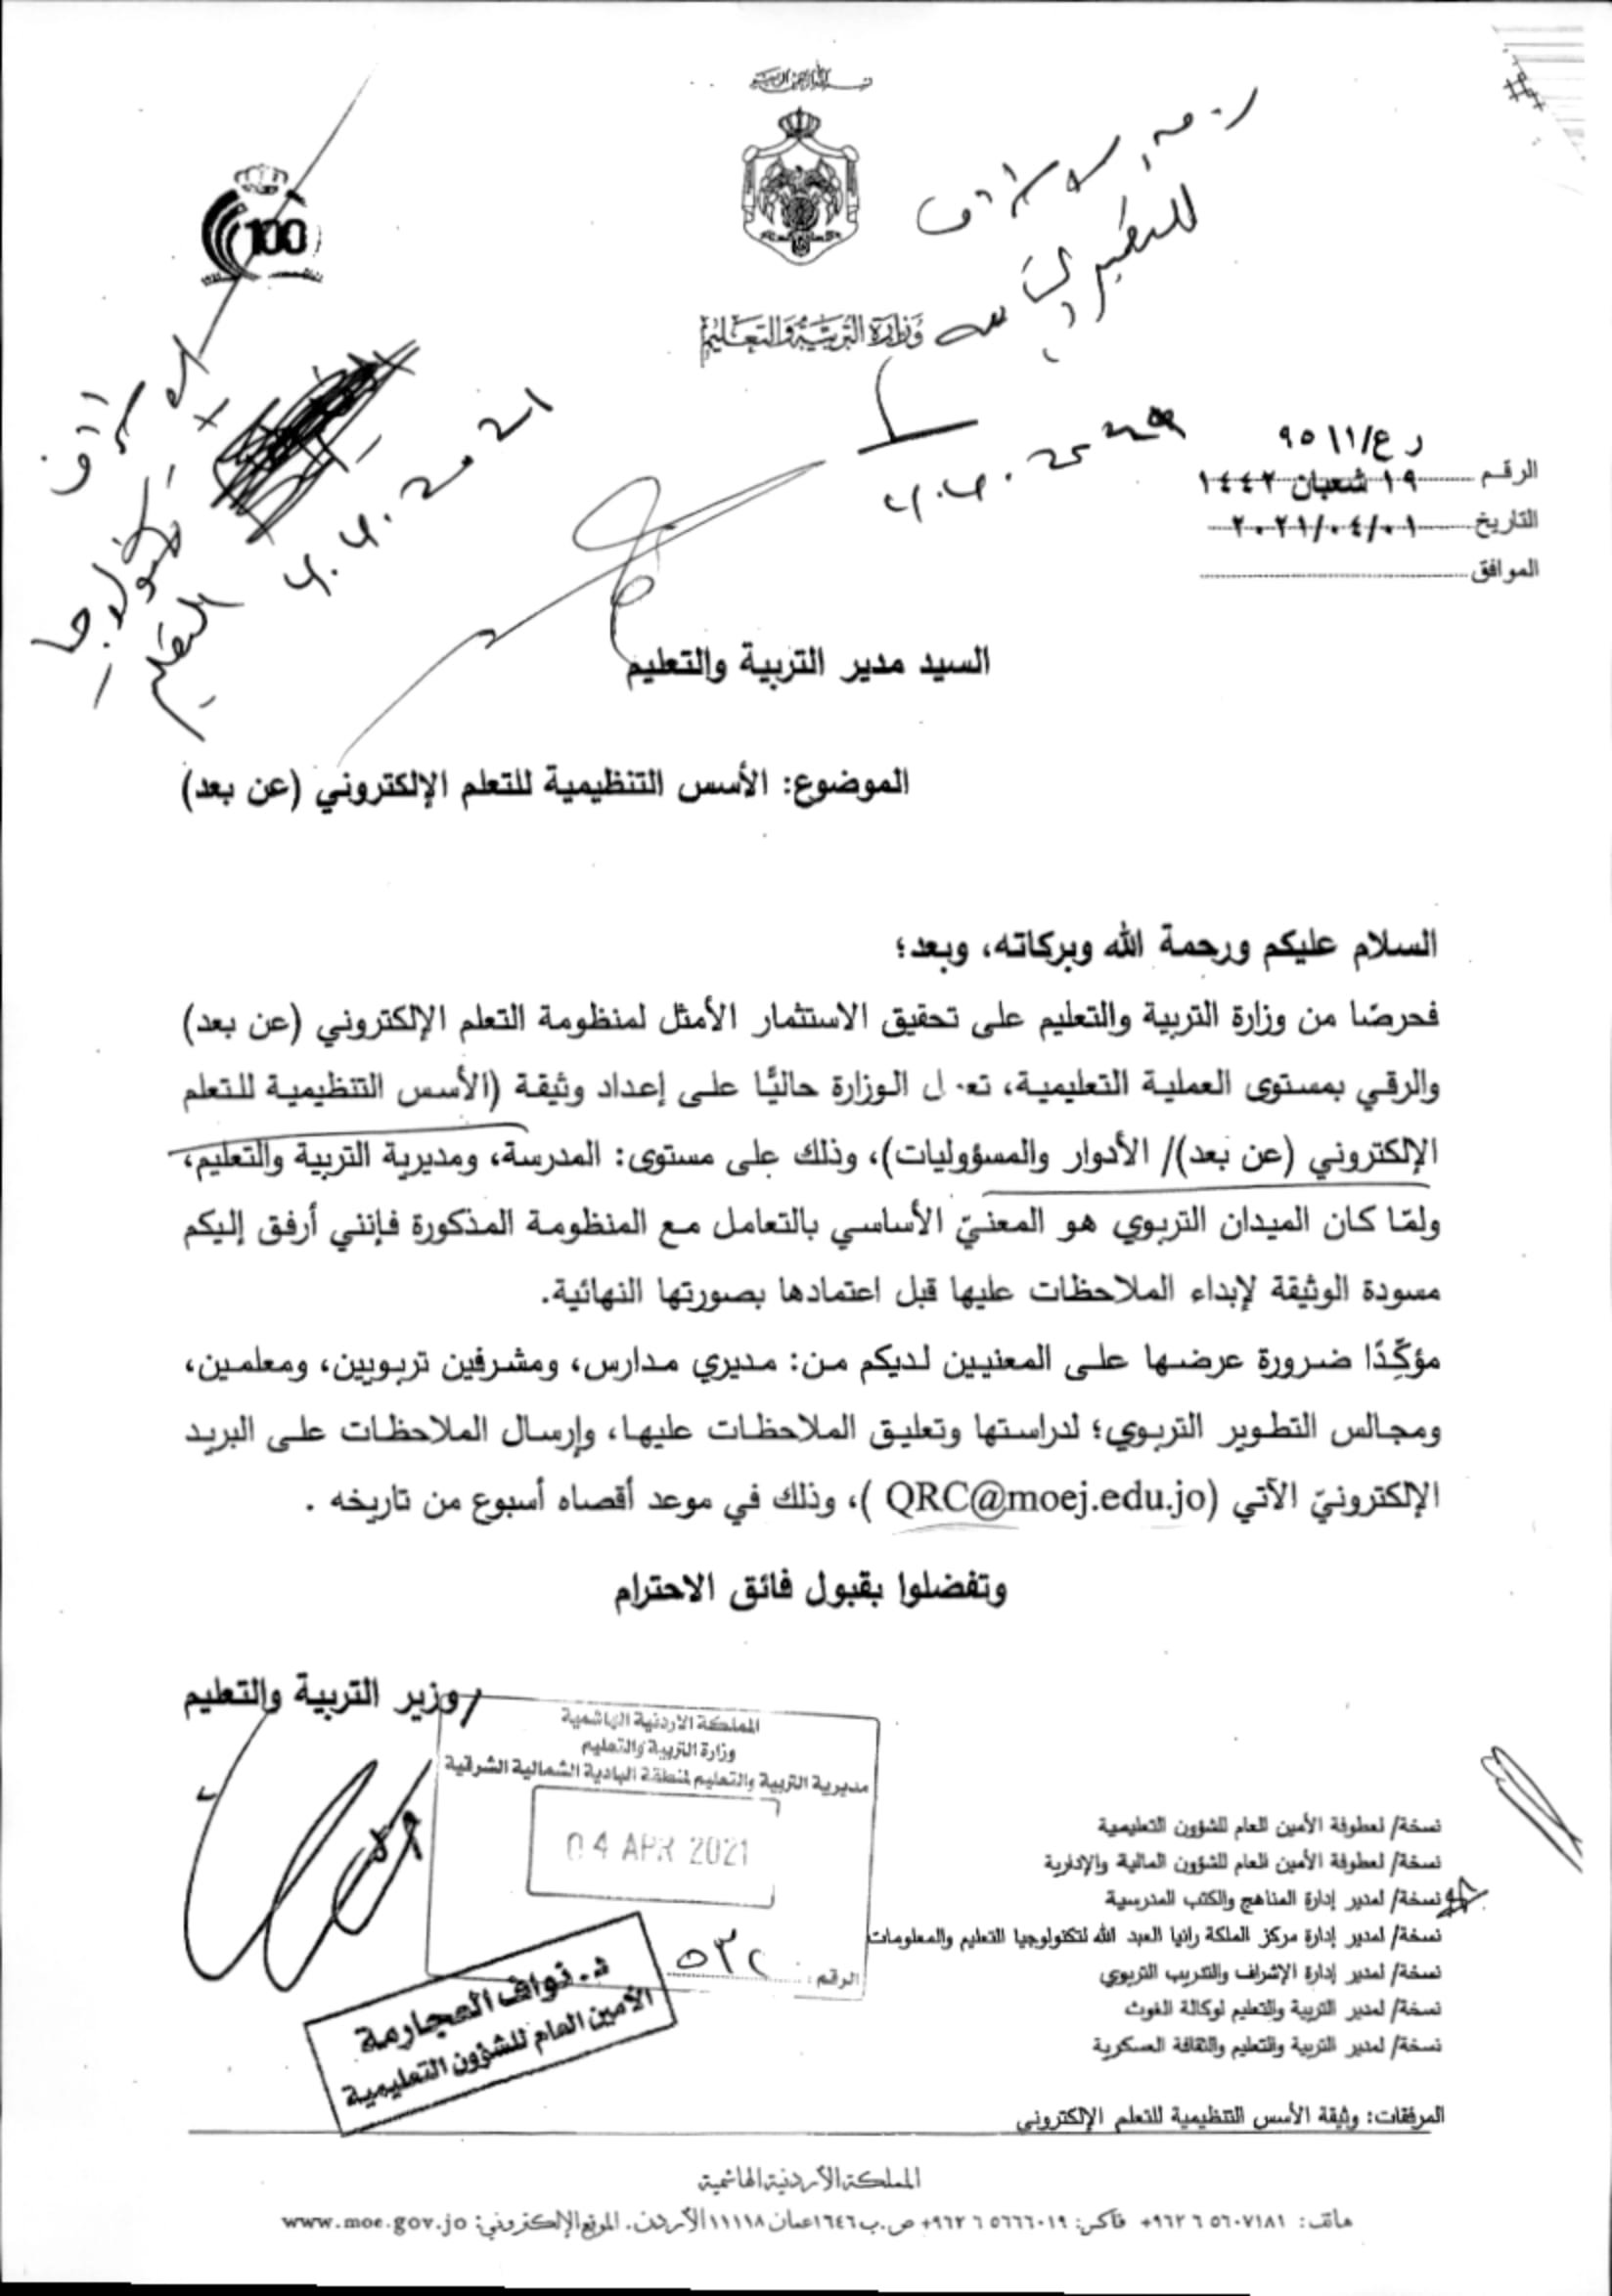 بسم الله الرحمن الرحيم
100
وزارة التربية والتعليم
الإشراف
تكنولوجيا
التعليم
4.4.2021
الرقم ر ع/٩٥١١/١
١٩ شعبان ١٤٤٢
التاريخ ٢٠٢١/٠٤/٠١
الموافق
السيد مدير التربية والتعليم
الموضوع: الأسس التنظيمية للتعلم الإلكتروني (عن بعد)
السلام عليكم ورحمة الله وبركاته، وبعد؛
فحرصًا من وزارة التربية والتعليم على تحقيق الاستثمار الأمثل لمنظومة التعلم الإلكتروني (عن بعد)
والرقي بمستوى العملية التعليمية، الوزارة حاليًا على إعداد وثيقة (الأسس التنظيمية للتعلم
الإلكتروني (عن بعد)/ الأدوار والمسؤوليات)، وذلك على مستوى: المدرسة، ومديرية التربية والتعليم،
ولمّا كان الميدان التربوي هو المعنيّ الأساسي بالتعامل مع المنظومة المذكورة فإنني أرفق إليكم
مسودة الوثيقة لإبداء الملاحظات عليها قبل اعتمادها بصورتها النهائية.
مؤكِّدًا ضرورة عرضها على المعنيين لديكم من: مديري مدارس، ومشرفين تربويين، ومعلمين،
ومجالس التطوير التربوي؛ لدراستها وتعليق الملاحظات عليها، وإرسال الملاحظات على البريد
الإلكترونيّ الآتي (QRC@moej.edu.jo )، وذلك في موعد أقصاه أسبوع من تاريخه .
وتفضلوا بقبول فائق الاحترام
/وزير التربية والتعليم
المملكة الأردنية الهاشمية
وزارة التربية والتعليم
مديرية التربية والتعليم لمنطقة البادية الشمالية الشرقية
04 APR 2021
الرقم: ٥٣٢
د. نواف العجارمة
الأمين العام للشؤون التعليمية
نسخة/ لعطوفة الأمين العام للشؤون التعليمية
نسخة/ لعطوفة الأمين العام للشؤون المالية والإدارية
نسخة/ لمدير إدارة المناهج والكتب المدرسية
نسخة/ لمدير إدارة مركز الملكة رانيا العبد الله لتكنولوجيا التعليم والمعلومات
نسخة/ لمدير إدارة الإشراف والتدريب التربوي
نسخة/ لمدير التربية والتعليم لوكالة الغوث
نسخة/ لمدير التربية والتعليم والثقافة العسكرية
المرفقات: وثيقة الأسس التنظيمية للتعلم الإلكتروني
المملكة الأردنية الهاشمية
هاتف: ٥٦٠٧١٨١ ٦ ٩٦٢+ فاكس: ٥٦٦٦٠١٩ ٦ ٩٦٢+ ص.ب ١٦٤٦ عمان ١١١١٨ الأردن. الموقع الإلكتروني: www.moe.gov.jo